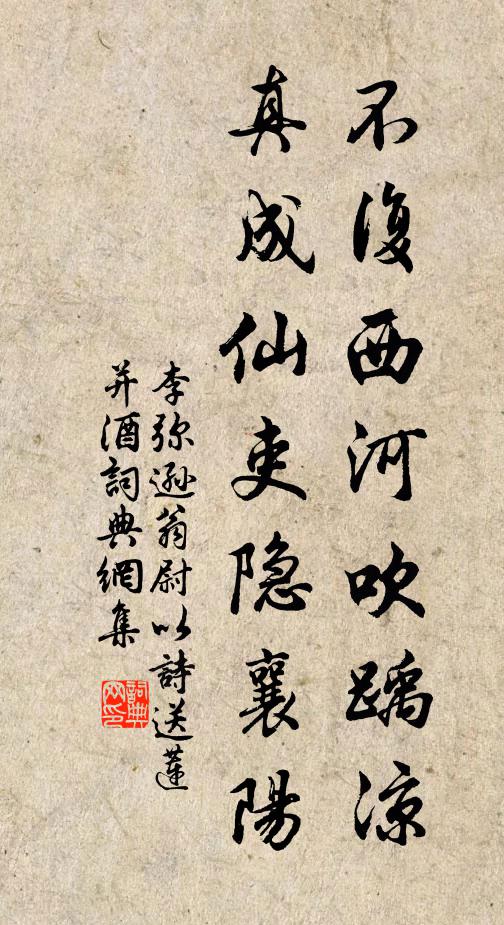 不復西河吹踽凉
真成仙吏隐襄陽
李弥遜翁尉以詩送蓮
并酒詞典網集
詞典网印